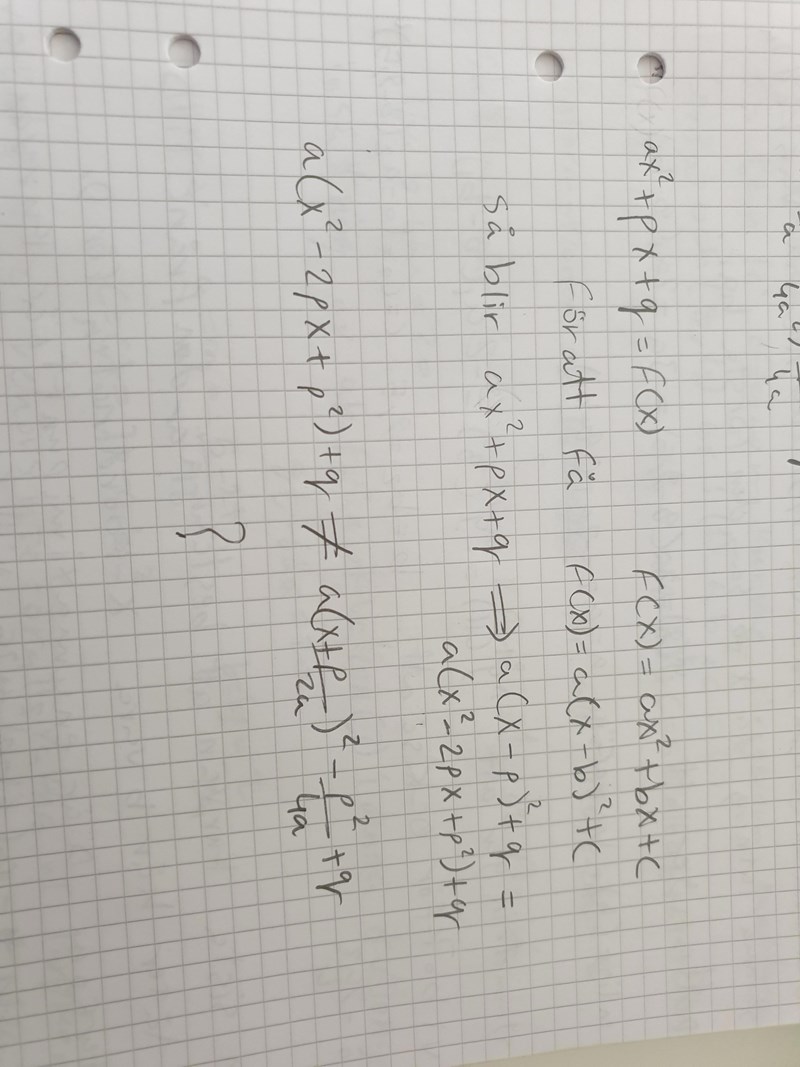 a 4a² 4a
ax² + px + q = f(x) f(x) = ax² + bx + c
för att få f(x) = a(x - b)² + c
så blir ax² + px + q ⟹ a(x - p)² + q =
a(x² - 2px + p²) + q
a(x² - 2px + p²) + q ≠ a(x + p/2a)² - p²/4a + q
?